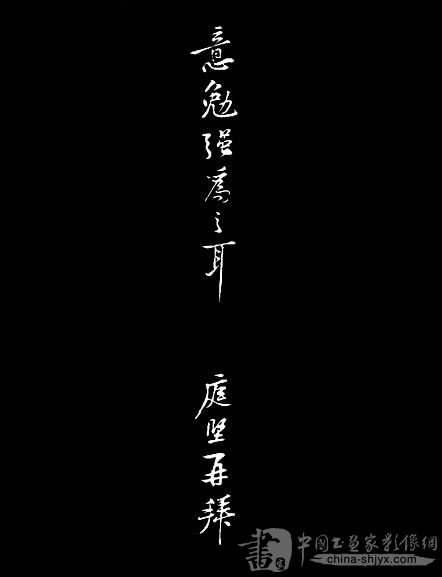 意勉强為之耳
庭坚再拜
書
中国书画家影像網
www.china-shjyx.com